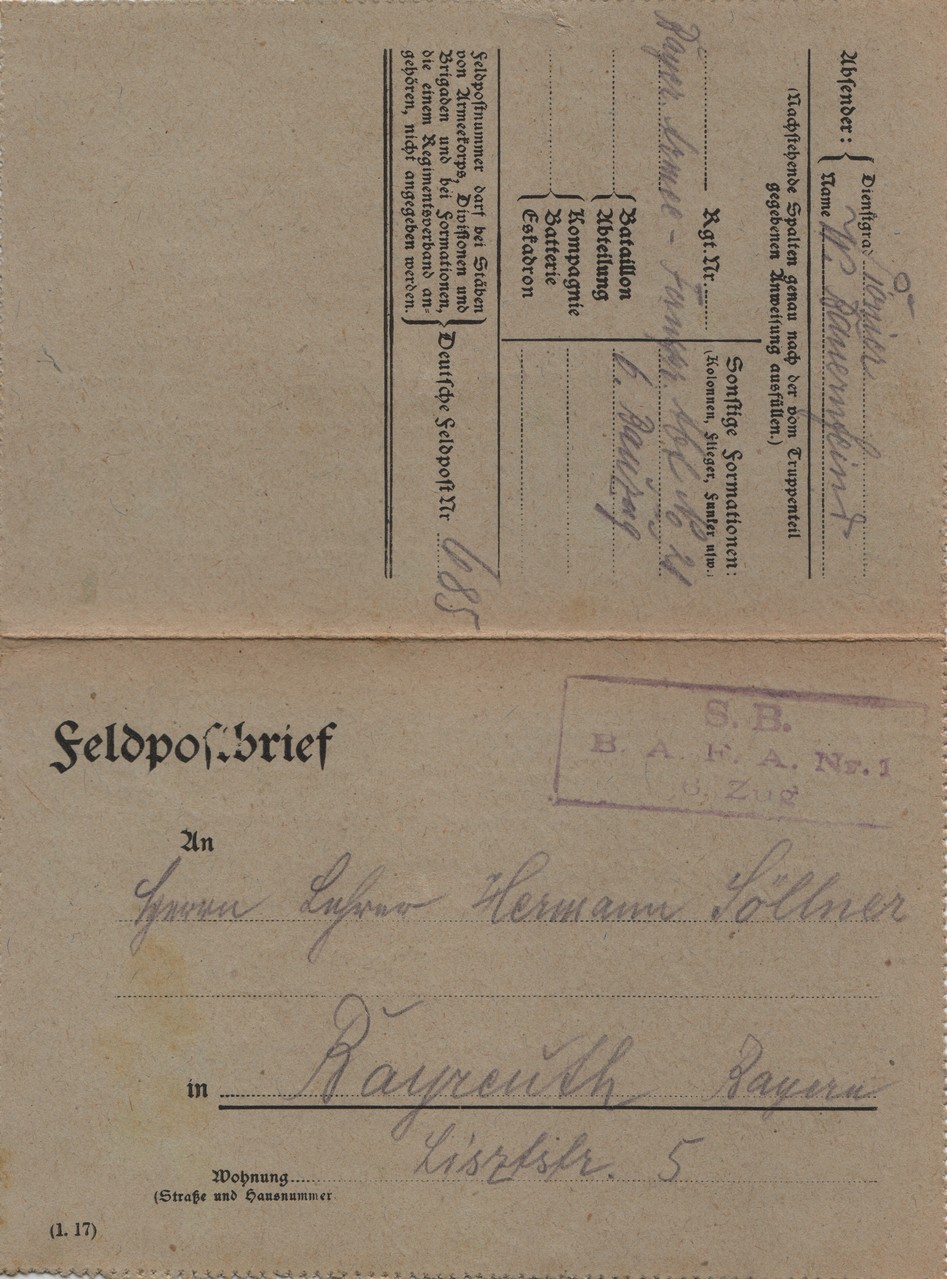 Absender:
Dienstgrad Pionier
Name W. Bauernfeind
(Nachstehende Spalten genau nach der vom Truppenteil
gegebenen Anweisung ausfüllen.)
Rgt. Nr.
Bataillon
Abteilung
Kompagnie
Batterie
Eskadron
Sonstige Formationen:
(Kolonnen, Flieger, Funker usw.)
Bayer. Armee-
6. Bauzug
Feldpostnummer darf bei Stäben
von Armeekorps, Divisionen und
Brigaden und bei Formationen,
die einem Regimentsverband an-
gehören, nicht angegeben werden.
Deutsche Feldpost Nr 685
Feldpostbrief
S. B.
B. A. F. A. Nr. 1
6. Zug
An
Herrn Lehrer Hermann Söllner
in Bayreuth Bayern
Lisztstr. 5
Wohnung
(Straße und Hausnummer
(1. 17)